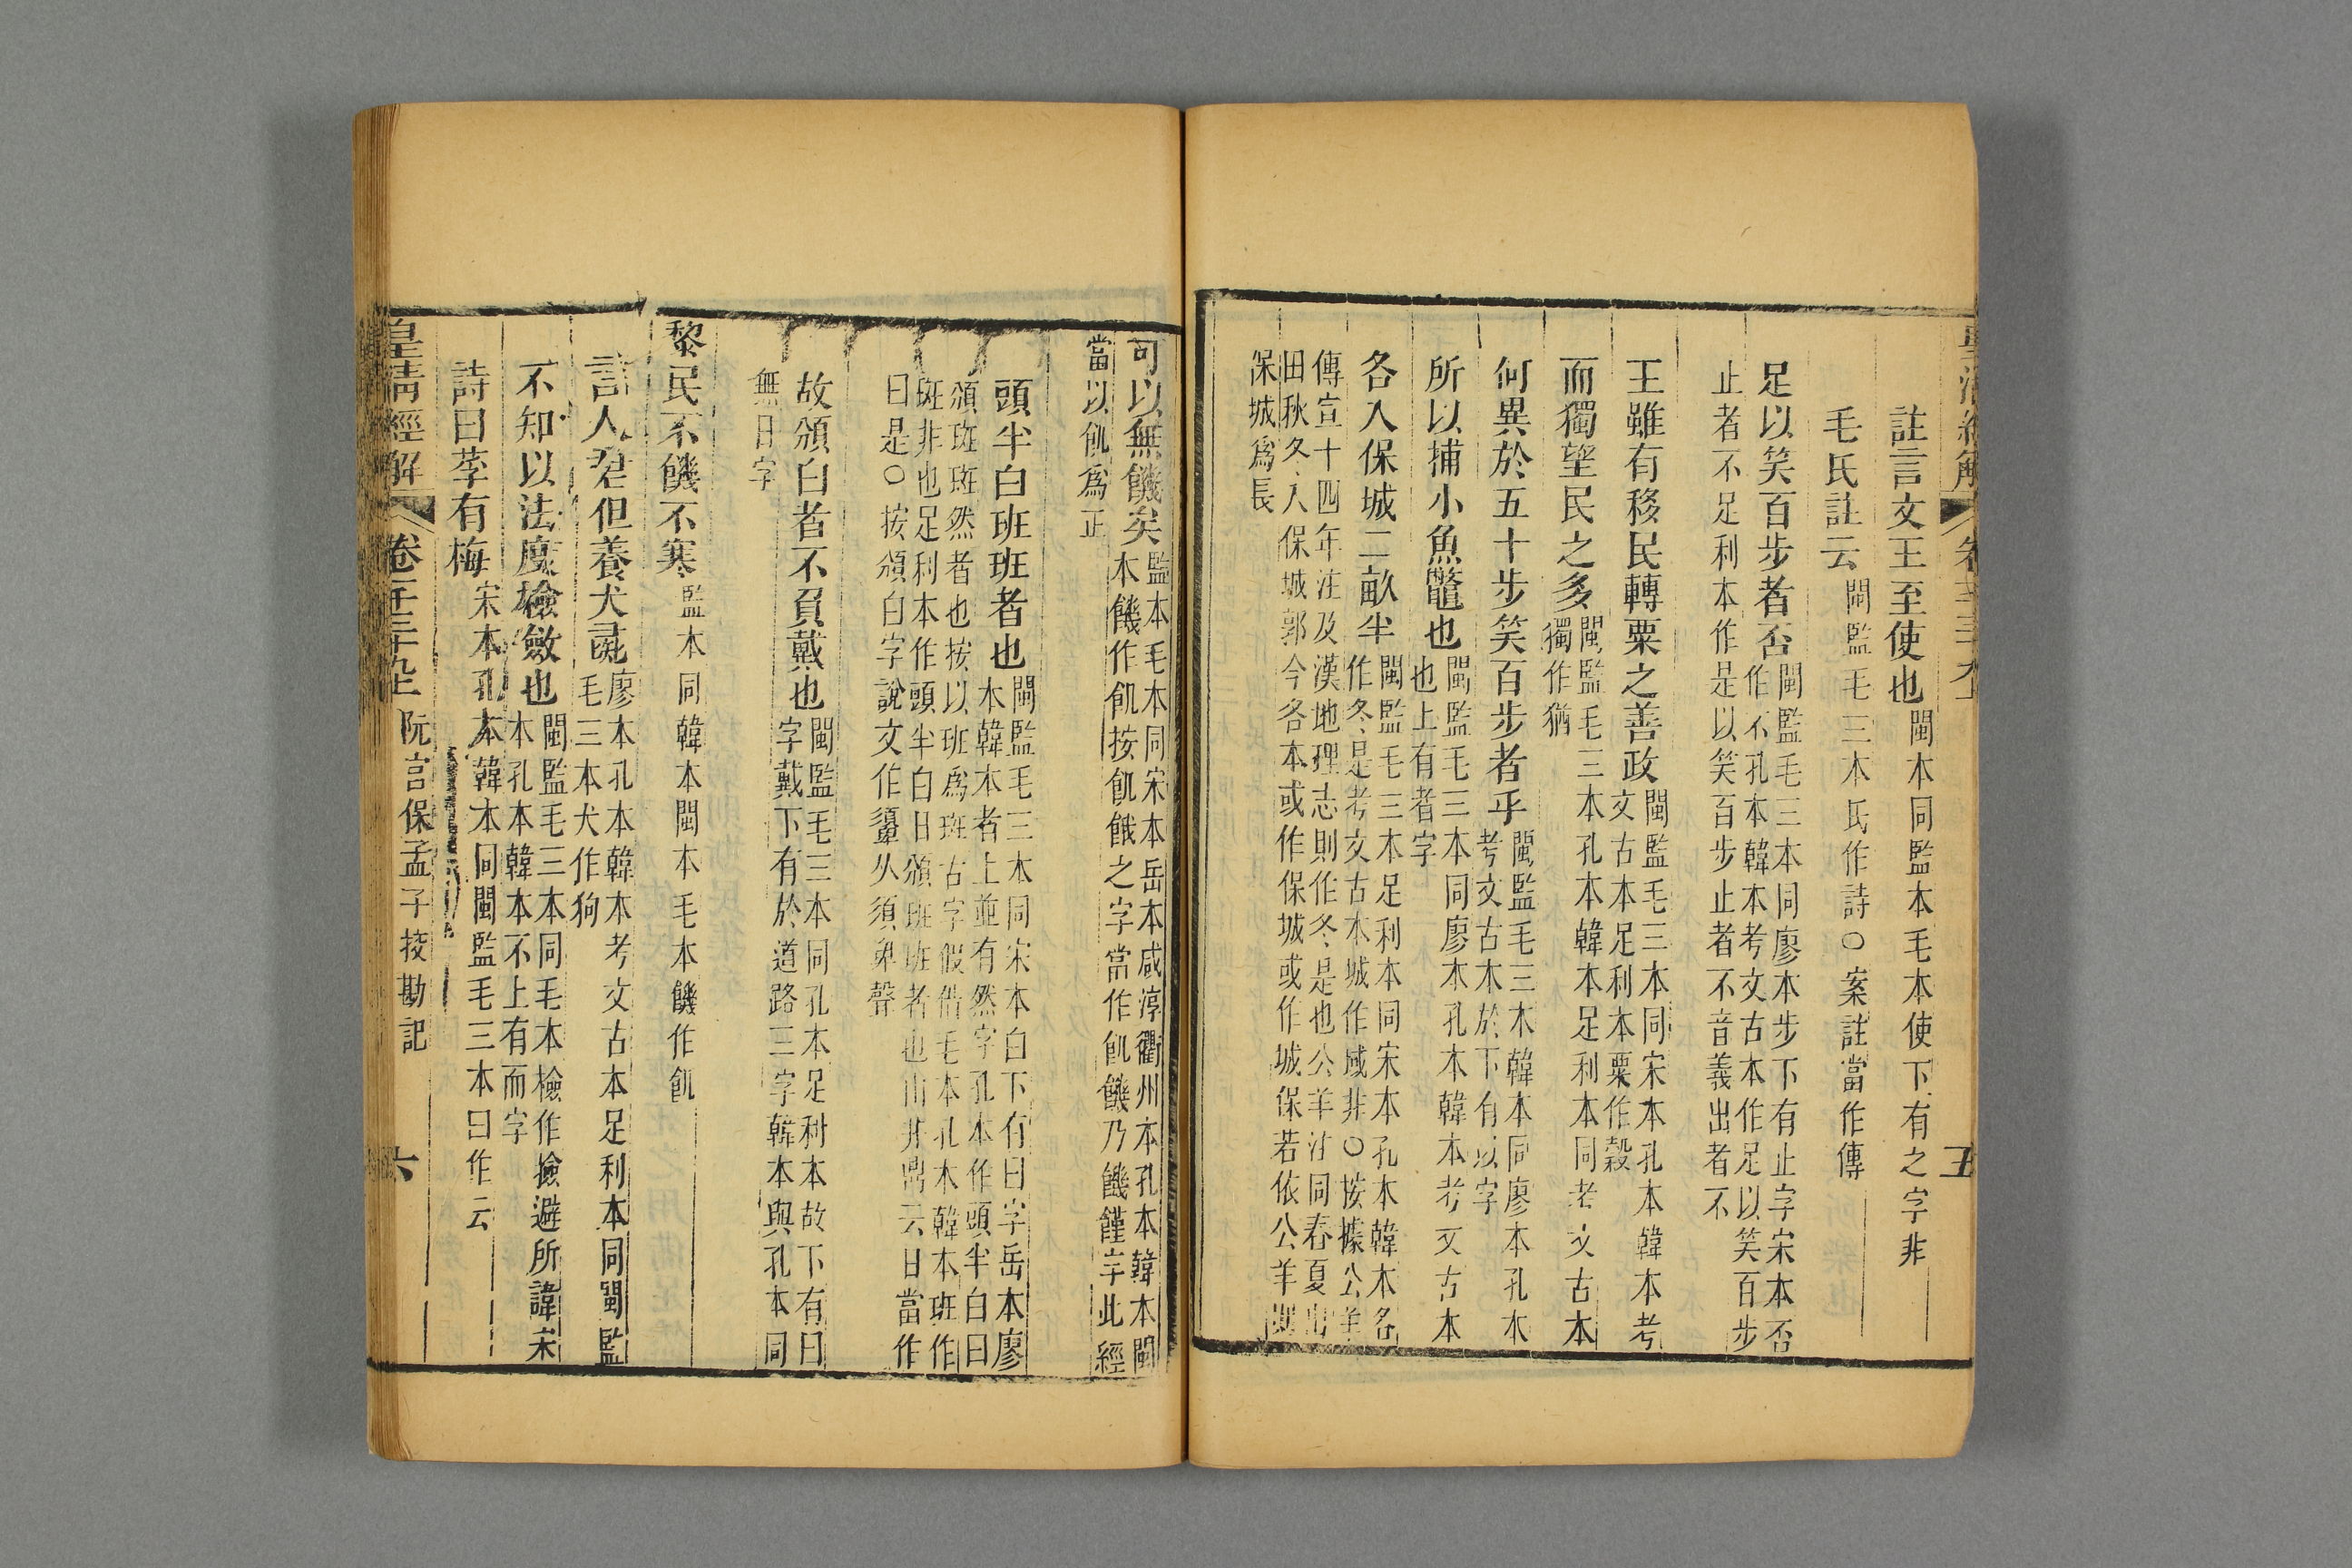 皇清經解 卷
五
註言文王至使也 閩本同監本毛本使下有之字非
毛氏註云 閩監毛三本氏作詩○案註當作傳
足以笑百步者否 閩監毛三本同廖本步下有止字宋本否
作不孔本韓本考文古本作足以笑百步
止者不足利本作是以笑百步止者不音義出者不
王雖有移民轉粟之善政 閩監毛三本同宋本孔本韓本考
文古本足利本粟作穀
而獨望民之多 閩監毛三本孔本韓本足利本同考文古本
獨作猶
何異於五十步笑百步者乎 閩監毛三本韓本同廖本孔本
考文古本於下有以字
所以捕小魚鼈也 閩監毛三本同廖本孔本韓本考文古本
也上有者字
各入保城二畝半 閩監毛三本足利本同宋本孔本韓本各
作冬是考文古本城作域非○按據公羊
傳宣十四年注及漢地理志則作冬是也公羊注同春夏出
田秋冬入保城郭今各本或作保城或作城保若依公羊
保城爲長
可以無饑矣 監本毛本同宋本岳本咸淳衢州本孔本韓本閩
本饑作飢按飢餓之字當作飢饑乃饑饉字此經
當以飢爲正
頭半白班班者也 閩監毛三本同宋本白下有曰字岳本廖
本韓本者上並有然字孔本作頭半白曰
頒斑斑然者也按以班爲斑古字假借毛本孔本韓本班作
斑非也足利本作頭半白曰頒班班者也山井鼎云日當作
曰是○按頒白字說文作𩔃从須𤰞聲
故頒白者不負戴也 閩監毛三本同孔本足利本故下有曰
字戴下有於道路三字韓本與孔本同
無曰字
黎民不饑不寒 監本同韓本閩本毛本饑作飢
言人君但養犬彘 廖本孔本韓本考文古本足利本同閩監
毛三本犬作狗
不知以法度檢斂也 閩監毛三本同毛本檢作撿避所諱宋
本孔本韓本不上有而字
詩曰莩有梅 宋本孔本韓本同閩監毛三本曰作云
皇清經解 卷一千三十九上 阮宮保孟子挍勘記
六